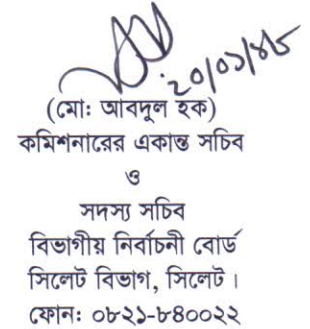 ২০/০১/১৮
(মোঃ আবদুল হক)
কমিশনারের একান্ত সচিব
ও
সদস্য সচিব
বিভাগীয় নির্বাচনী বোর্ড
সিলেট বিভাগ, সিলেট।
ফোনঃ ০৮২১-৮৪০০২২